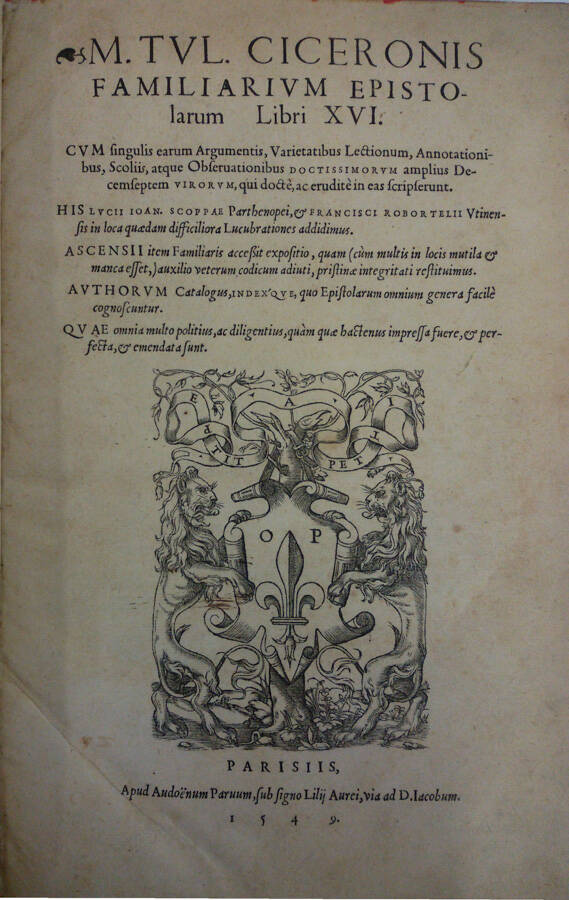 M. TVL. CICERONIS
FAMILIARIVM EPISTO-
larum Libri XVI.
CVM ſingulis earum Argumentis, Varietatibus Lectionum, Annotationi-
bus, Scoliis, atque Obſeruationibus DOCTISSIMORVM amplius De-
cemſeptem VIRORVM, qui doctè, ac eruditè in eas ſcripſerunt.
HIS LVCII IOAN. SCOPPAE Parthenopei, & FRANCISCI ROBORTELII Vtinen-
ſis in loca quædam difficiliora Lucubrationes addidimus.
ASCENSII item Familiaris acceßit expoſitio, quam (cùm multis in locis mutila &
manca eſſet,) auxilio veterum codicum adiuti, priſtinæ integritati reſtituimus.
AVTHORVM Catalogus, INDEX'QVE, quo Epiſtolarum omnium genera facilè
cognoſcuntur.
QVAE omnia multo politius, ac diligentius, quàm quæ hactenus impreſſa fuere, & per-
fecta, & emendata ſunt.
E A I
PTIT PETT
O P
PARISIIS,
Apud Audoënum Paruum, ſub ſigno Lilij Aurei, via ad D. Iacobum.
1549.